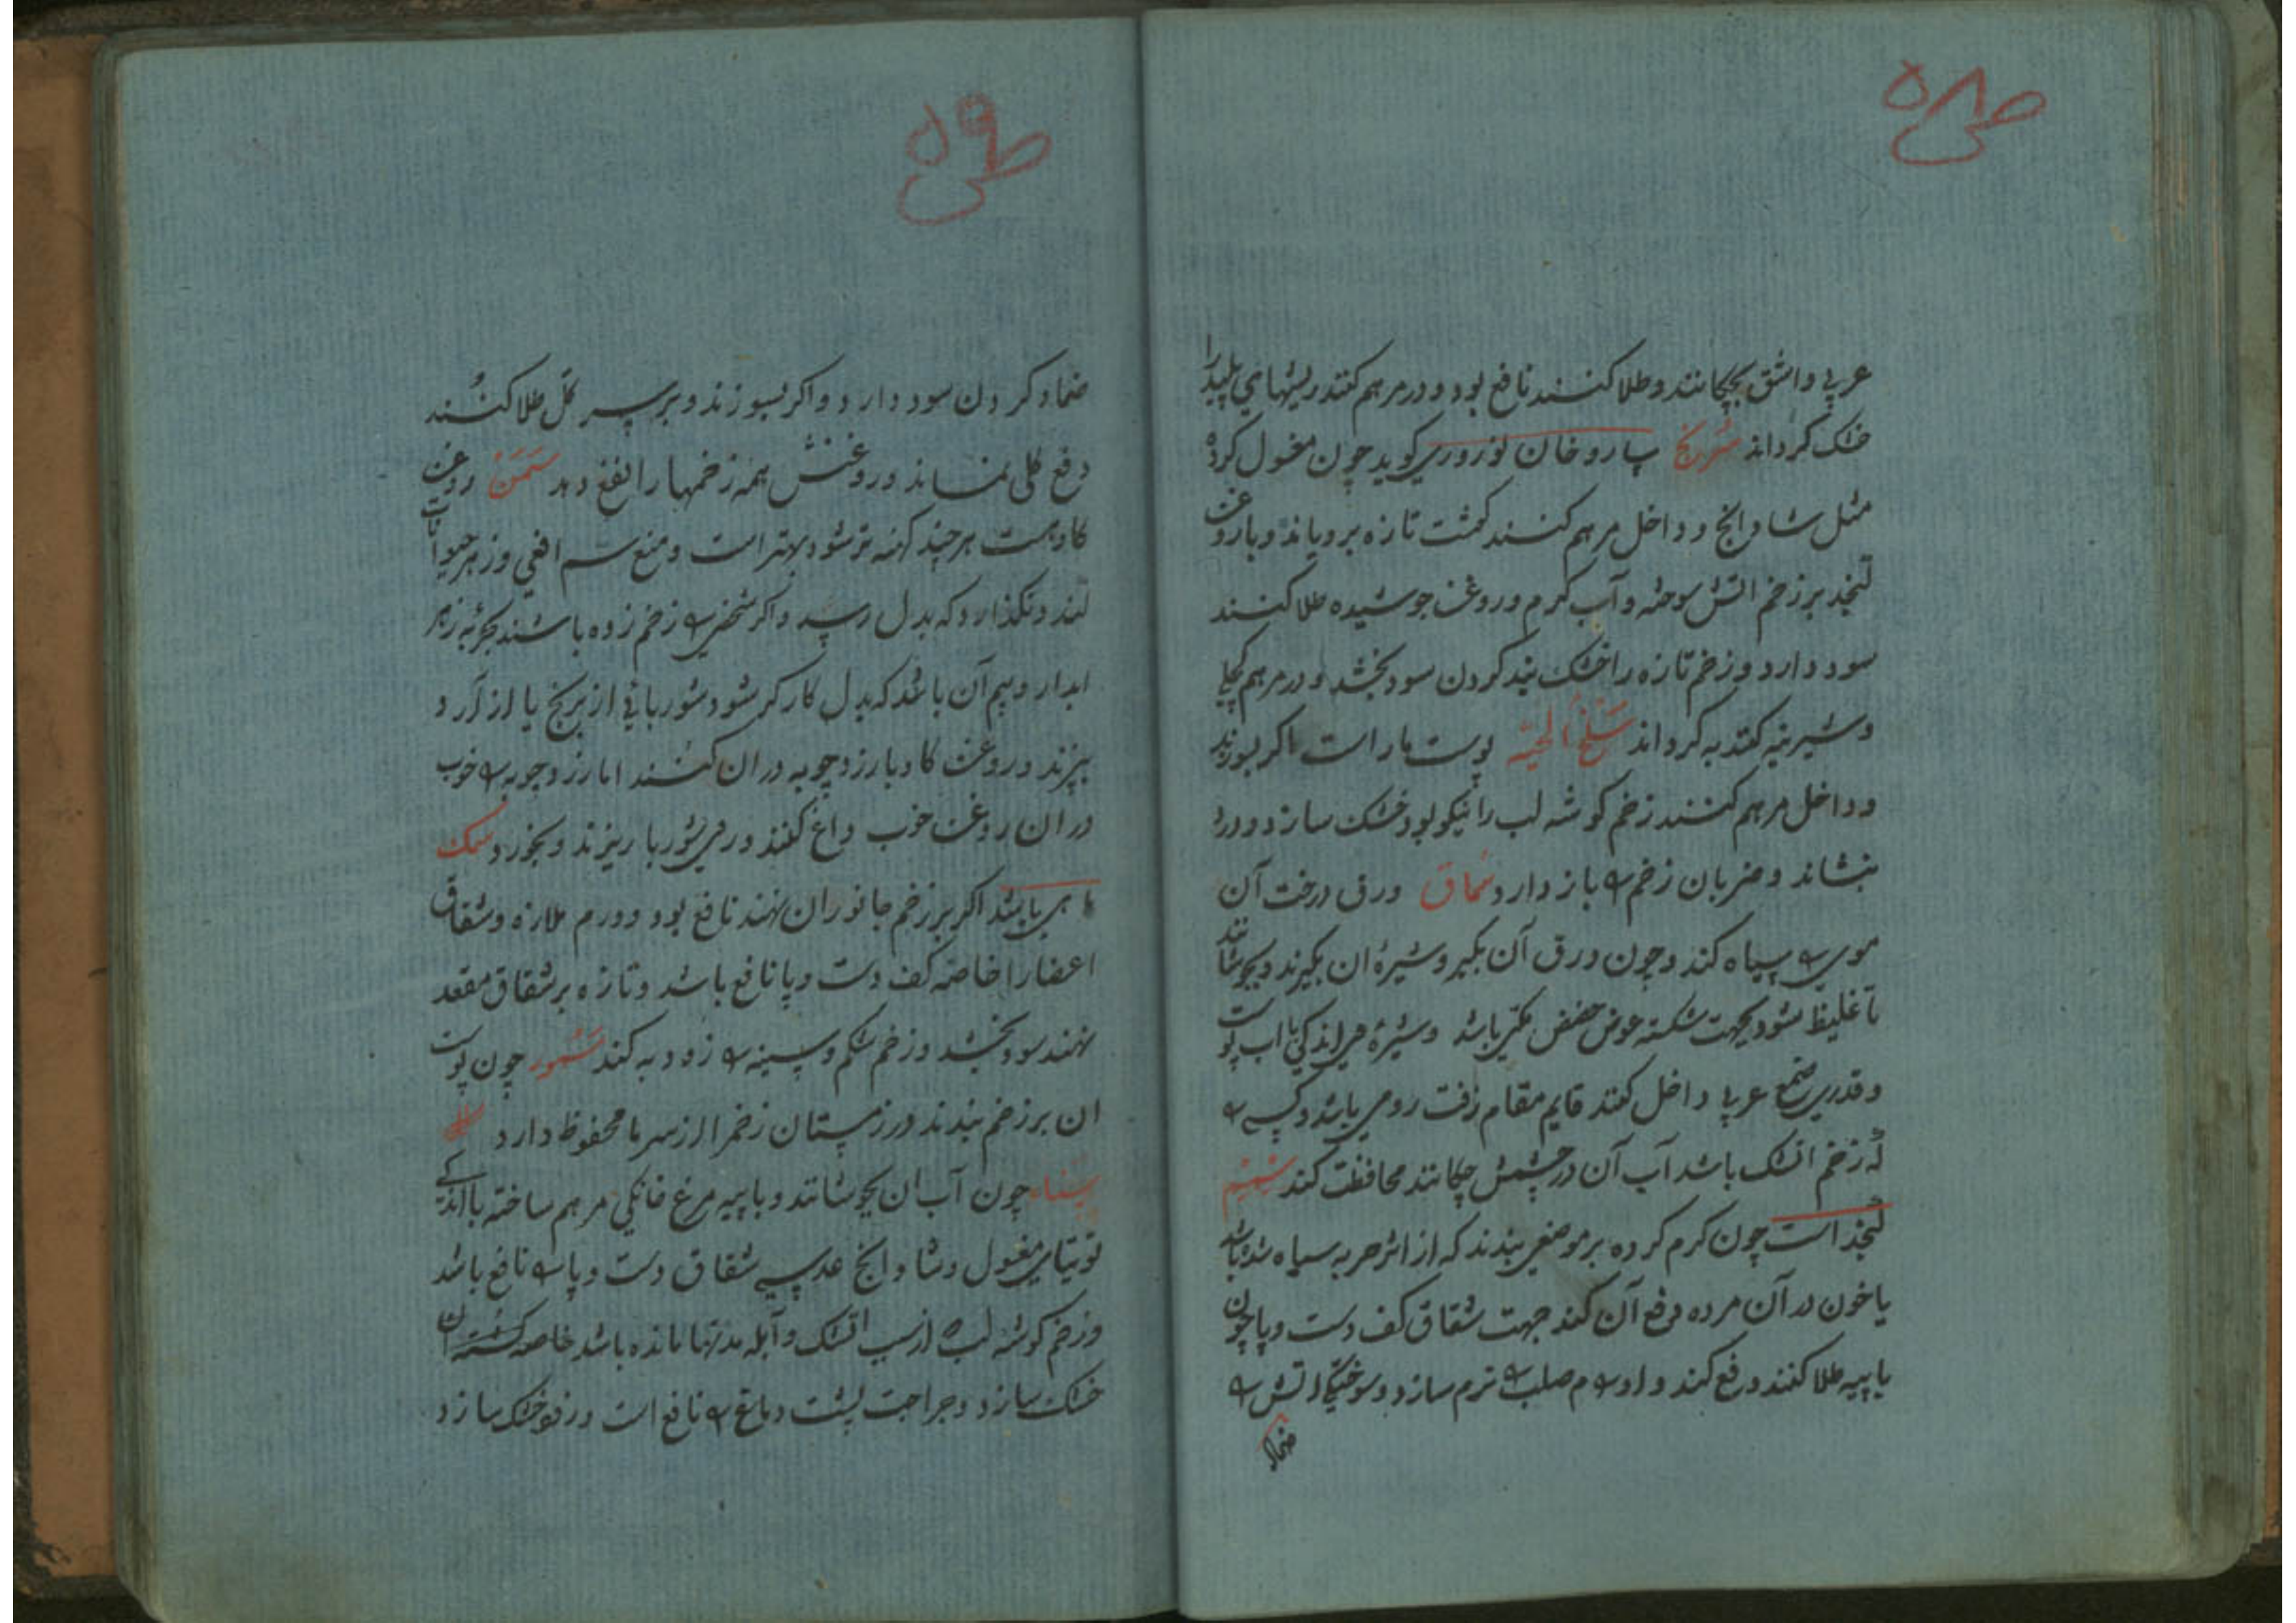 ص‍ی ۵۸
عربی و اشق بچکانند و طلا کنند نافع بود و در مرهم کنند ریشهای پلید را
خشک کرداند سرنج پاروخان نوروزی کوید چون مغسول کرده
مثل شادانج و داخل مرهم کنند کوشت تازه برویاند و با روغن
کنجد بر زخم اتش سوخته و آب کرم و روغن جوشیده طلا کنند
سود دارد و زخم تازه را خشک بند کردن سود بخشد و در مرهم
و شیرینه کنند به کرداند سلخ الحیه پوست مار است اکر بسوزند
و داخل مرهم کنند زخم کوشه لب را نیکو بود خشک سازد و درد
بنشاند و ضربان زخم را باز دارد سماق ورق درخت آن
موی را سیاه کند و چون ورق آن بکیر و شیره ان بکیرند و بجوشانند
تا غلیظ شود بجهت شکسته عوض حضض مکی باشد و شیره
و قدری صمغ عربی داخل کنند قایم مقام زفت رومی باشد و کسی را
که زخم اتشک باشد آب آن در چشمش چکانند محافظت کند سمسم
کنجد است چون کرم کرده بر موضعی بندند که از اثر حربه سیاه شده باشد
یا خون در آن مرده دفع آن کند جهت شقاق کف دست و پا چون
با پیه طلا کنند دفع کند و اورام صلب را نرم سازد و سوختکی اتش را
ضماد
ص‍ی ۵۹
ضماد کردن سود دارد و اکر بسوزند و بر سر کل طلا کنند
دفع کلی نماند و روغنش همه زخمها را نفع دهد سمن روغن
کاو است هر چند کهنه تر شود بهتر است و منع سم افعی و زهر حیوانات
کند و نکذارد که بدل رسد و اکر شخصی را زخم زده باشند بحربه زهر
ابدار و بیم آن باشد که بدل کارکر شود شوربائی از برنج یا از آرد
بپزند و روغن کاو با زردچوبه در ان کنند اما زردچوبه را خوب
در ان روغن خوب داغ کنند و در شوربا ریزند و بخورد سمک
ماهی باشد اکر بر زخم جانوران نهند نافع بود و ورم ملازه و شقاق
اعضا را خاصه کف دست و پا نافع باشد و تازه بر شقاق مقعد
نهند سود بخشد و زخم شکم و سینه را زود به کند سمور چون پوست
ان بر زخم بندند در زمستان زخم را از سرما محفوظ دارد
سناء چون آب ان بجوشانند و با پیه مرغ خانکی مرهم ساخته با اندکی
توتیای مغسول و شادانج عدسی شقاق دست و پا را نافع باشد
و زخم کوشه لب را از سبب اتشک و آبله مدتها مانده باشد خاصه
خشک سازد و جراحت پشت و دماغ را نافع است و زفو خشک سازد